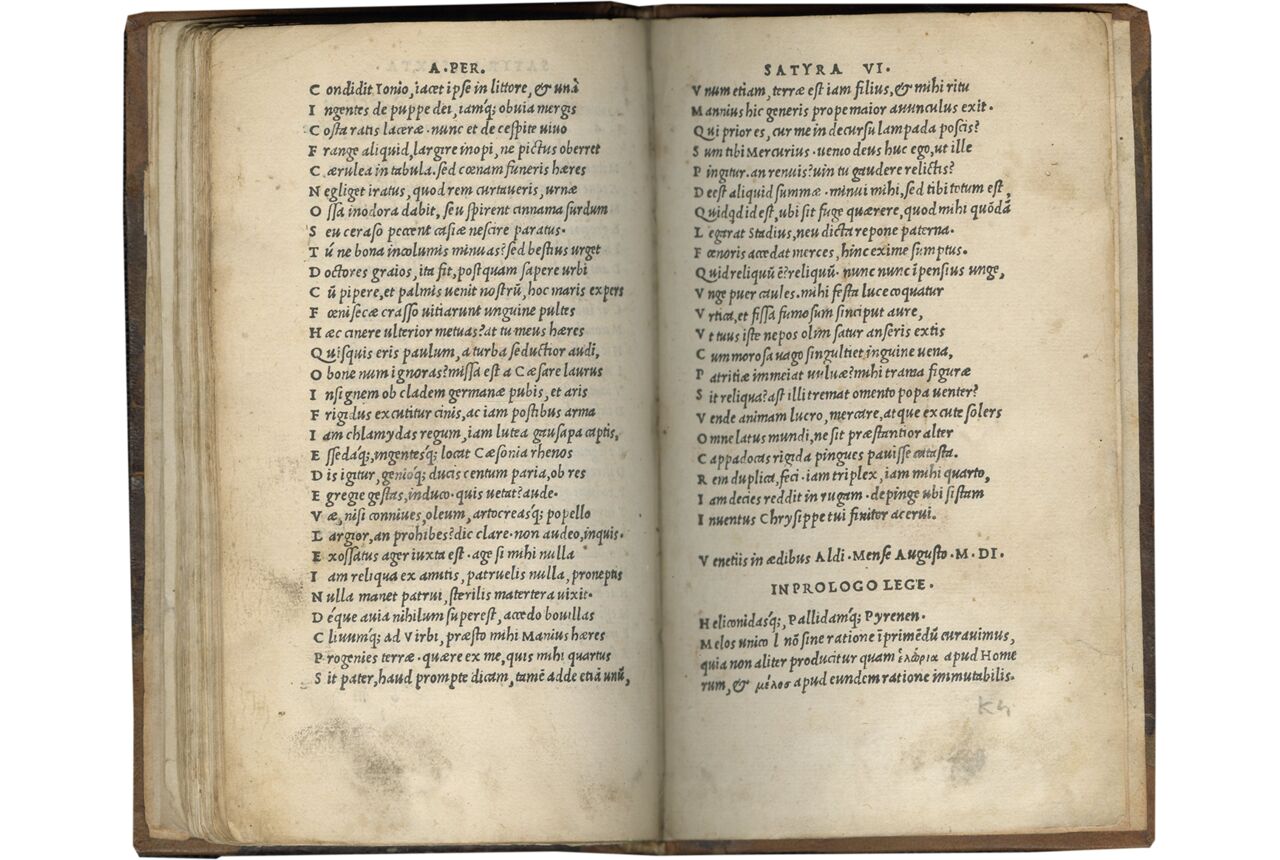 A. PER.
C ondidit Ionio, iacet ipse in littore, & unà
I ngentes de puppe dei, iamq; obuia mergis
C osta ratis laceræ. nunc et de cespite uiuo
F range aliquid, largire inopi, ne pictus oberret
C ærulea in tabula. sed cœnam funeris hæres
N egliget iratus, quod rem curtaueris, urnæ
O ssa inodora dabit, seu spirent cinnama surdum
S eu ceraso peccent casiæ nescire paratus.
T ú ne bona incolumis minuas? sed bestius urget
D octores graios, ita fit, postquam sapere urbi
C ũ pipere, et palmis uenit nostrũ, hoc maris expers
F œnisecæ crasso uitiarunt unguine pultes
H æc cinere ulterior metuas? at tu meus hæres
Q uisquis eris paulum, a turba seductior audi,
O bone num ignoras? missa est a Cæsare laurus
I nsignem ob cladem germanæ pubis, et aris
F rigidus excutitur cinis, ac iam postibus arma
I am chlamydas regum, iam lutea gausapa captis,
E ssedaq;, ingentesq; locat Cæsonia rhenos
D is igitur, genioq; ducis centum paria, ob res
E gregie gestas, induco. quis uetat? aude.
V æ, nisi conniues, oleum, artocreasq; popello
L argior, an prohibes? dic clare. non audeo, inquis.
E xossatus ager iuxta est. age si mihi nulla
I am reliqua ex amitis, patruelis nulla, proneptis
N ulla manet patrui, sterilis matertera uixit.
D éque auia nihilum superest, accedo bouillas
C liuumq; ad Virbi, præsto mihi Manius hæres
P rogenies terræ. quære ex me, quis mihi quartus
S it pater, haud prompte dicam, tamẽ adde etiã unũ,
SATYRA VI.
V num etiam, terræ est iam filius, & mihi ritu
M annius hic generis prope maior auunculus exit.
Q ui prior es, cur me in decursu lampada poscis?
S um tibi Mercurius. uenio deus huc ego, ut ille
P ingitur. an renuis? uin tu gaudere relictis?
D eest aliquid summæ. minui mihi, sed tibi totum est,
Q uidqd id est, ubi sit fuge quærere, quod mihi quõdã
L egarat Stadius, neu dicta repone paterna.
F œnoris accedat merces, hinc exime sumptus.
Q uid reliquũ ẽ? reliquũ. nunc nunc ĩpensius unge,
V nge puer caules. mihi festa luce coquatur
V rtica, et fissa fumosum sinciput aure,
V t tuus iste nepos olim satur anseris extis
C um morosa uago singultiet inguine uena,
P atritiæ immeiat uuluæ? mihi trama figuræ
S it reliqua? ast illi tremat omento popa uenter?
V ende animam lucro, mercare, atque excute solers
O mne latus mundi, ne sit præstantior alter
C appadocas rigida pingues pauisse catasta.
R em duplica, feci. iam triplex, iam mihi quarto,
I am decies reddit in rugam. depinge ubi sistam
I nuentus Chrysippe tui finitor acerui.
V enetiis in ædibus Aldi. Mense Augusto. M. DI.
IN PROLOGO LEGE.
H eliconidasq;, Pallidamq; Pyrenen.
M elos unico l nõ sine ratione ĩprimẽdũ curauimus,
quia non aliter producitur quam ἑλώρια apud Home
rum, & μέλος apud eundem ratione immutabilis.